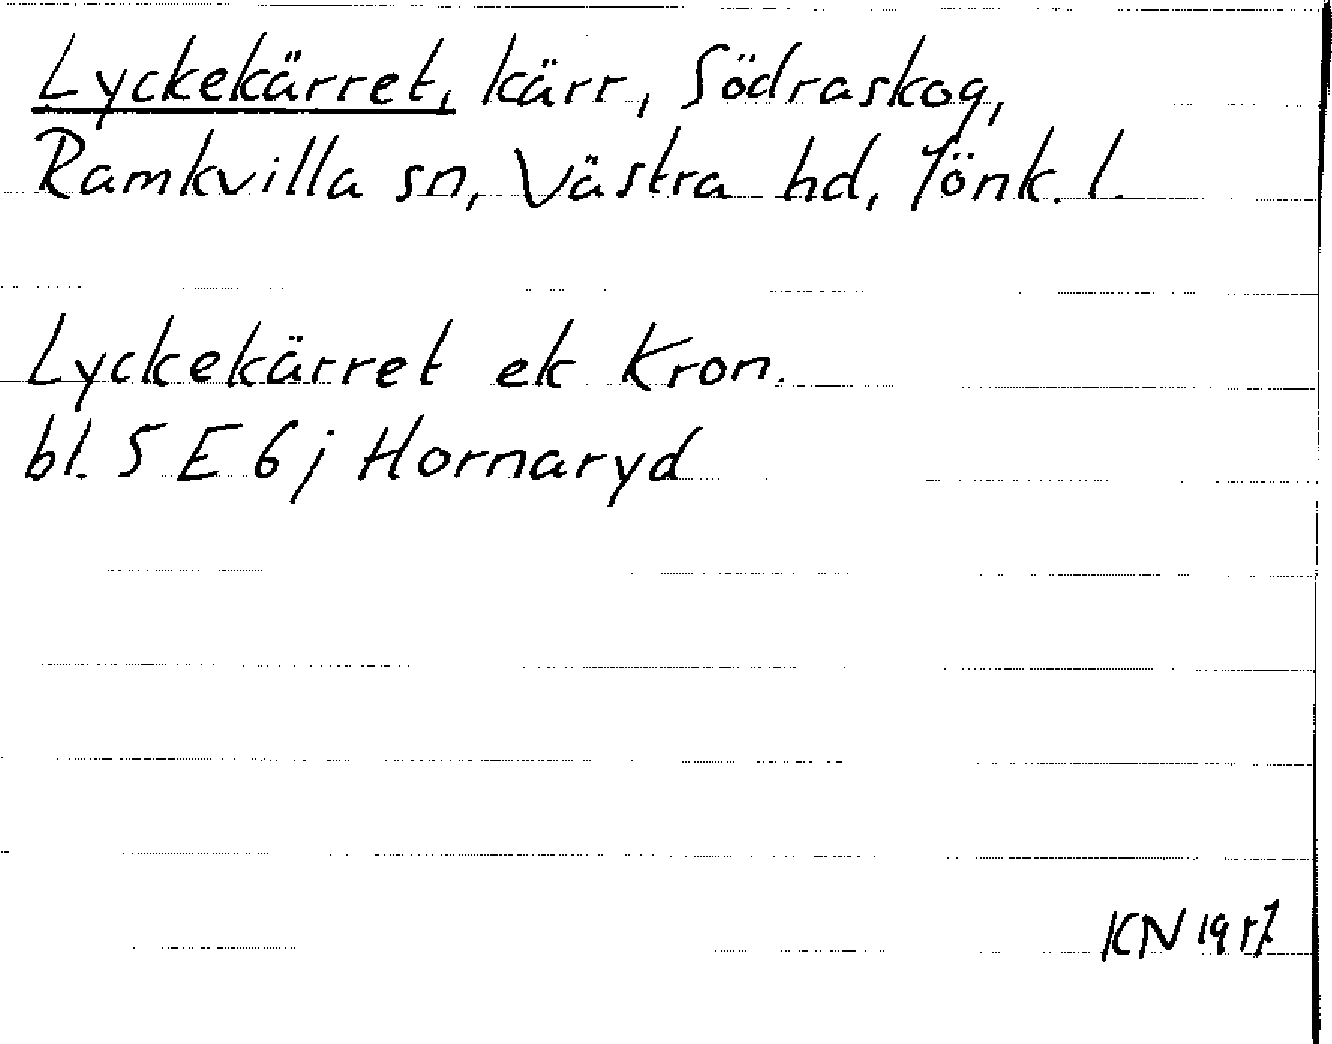 Lyckekärret, kärr, Södraskog,
Ramkvilla sn, Västra hd, Jönk. l.
Lyckekärret ek Kron.
bl. 5 E 6 j Hornaryd
KN 1957